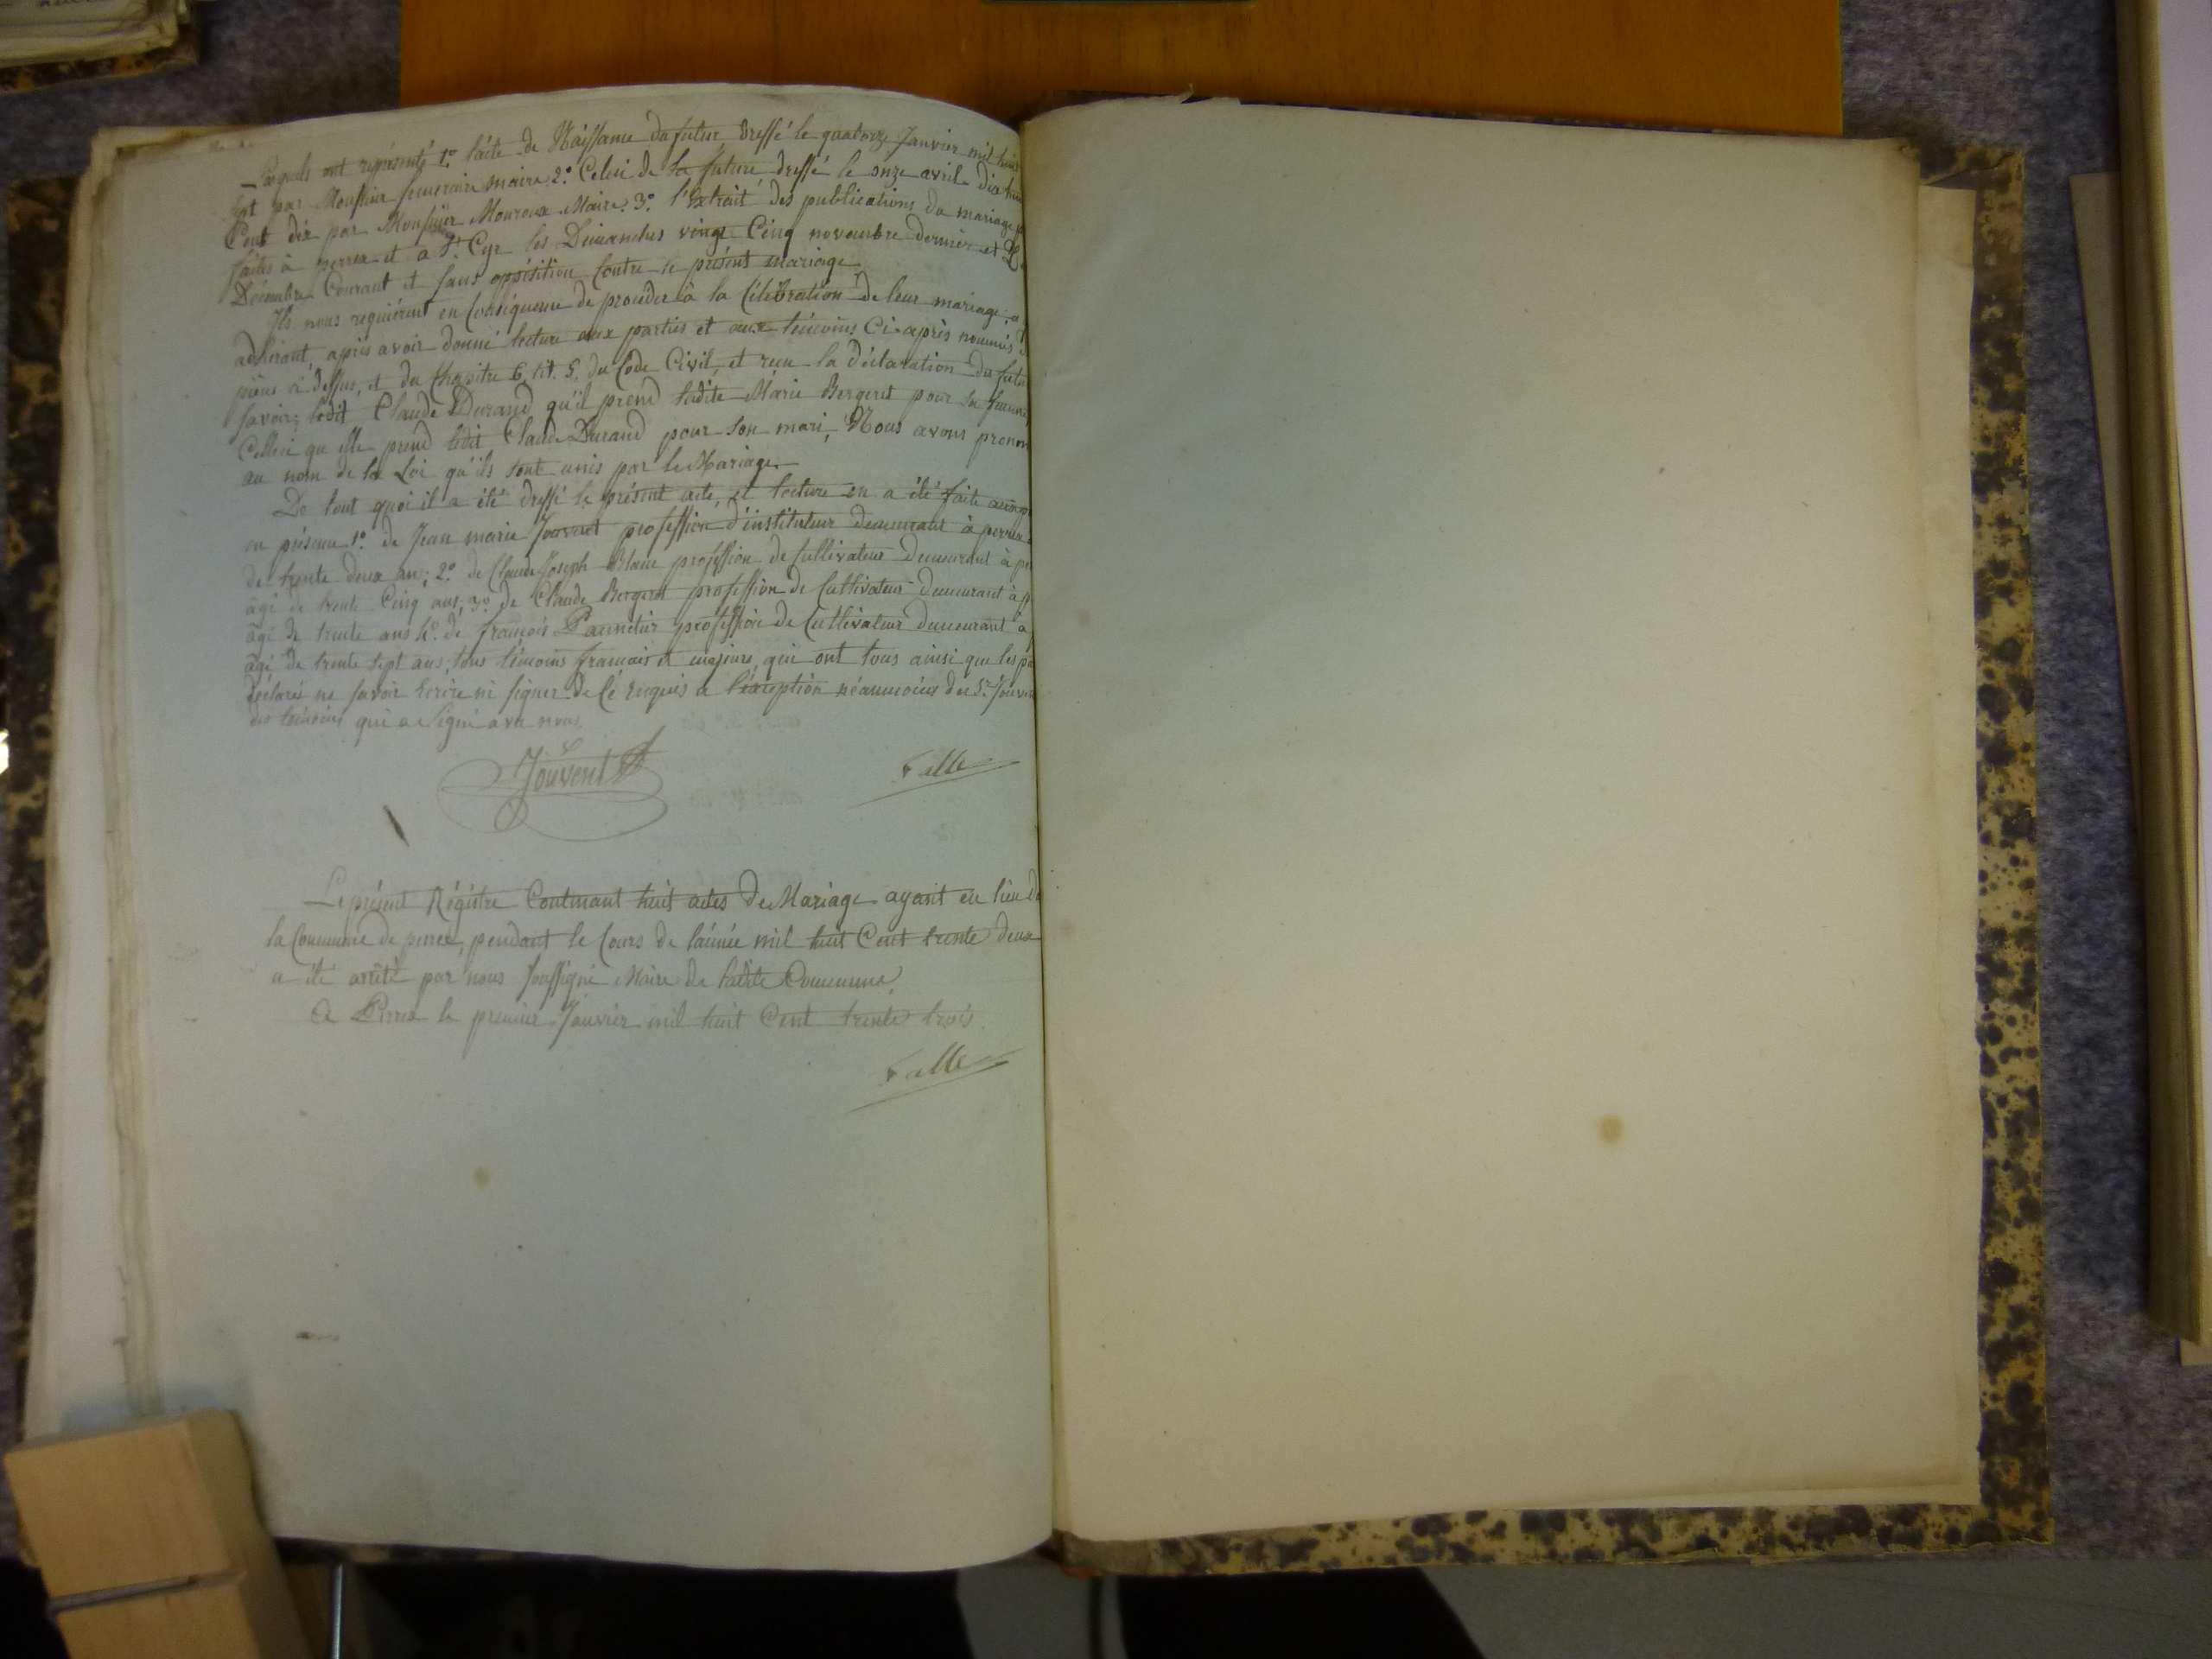 Lesquels ont représenté 1.º l'acte de Naissance du futur dressé le quatorze Janvier mil huit
sept par Monsieur maire 2.º Celui de la future dressé le onze avril dix huit
Cent dix par Monsieur Mouroux Maire. 3.º l'Extrait des publications du mariage
faites à perrex et a St. Cyr les Dimanches vingt Cinq novembre dernier et
Décembre Courant et sans opposition Contre le présent mariage.
Ils nous requièrent en Conséquence de procéder à la Célébration de leur mariage, a
adhérant, après avoir donné lecture aux parties et aux témoins Ci-après nommés
pièces ci-dessus, et du Chapitre 6, tit. 5, du Code Civil, et reçu la déclaration du futur
savoir; ledit Claude Durand qu'il prend ladite Marie Bergeret pour sa femme,
Celleci qu'elle prend ledit Claude Durand pour son mari, Nous avons pronon
au nom de la Loi qu'ils sont unis par le Mariage.
De tout quoi il a été dressé le présent acte, et lecture en a été faite aux
en présence 1.º de Jean marie Jouvent profession d'instituteur demeurant à perrex
de trente deux an; 2.º de Claude Joseph Blanc profession de Cultivateur Demeurant à
âgé de trente Cinq ans, 3.º de Claude Bergeret profession de Cultivateur Demeurant à
âgé de trente ans 4.º de françois profession de Cultivateur demeurant à
âgé de trente sept ans; tous témoins français et majeurs, qui ont tous ainsi que les
déclaré ne savoir Ecrire ni signer de Cé requis a l'exception néanmoins du Sr. Jouvent
des témoins qui a Signé avec nous.
Jouvent
Le présent Régistre Contenant huit actes De Mariage ayant eu lieu
la Commune de perrex, pendant le Cours de l'année mil huit Cent trente deux
a été arrêté par nous soussigné Maire de ladite Commune,
A Perrex le premier Janvier mil huit Cent trente trois.